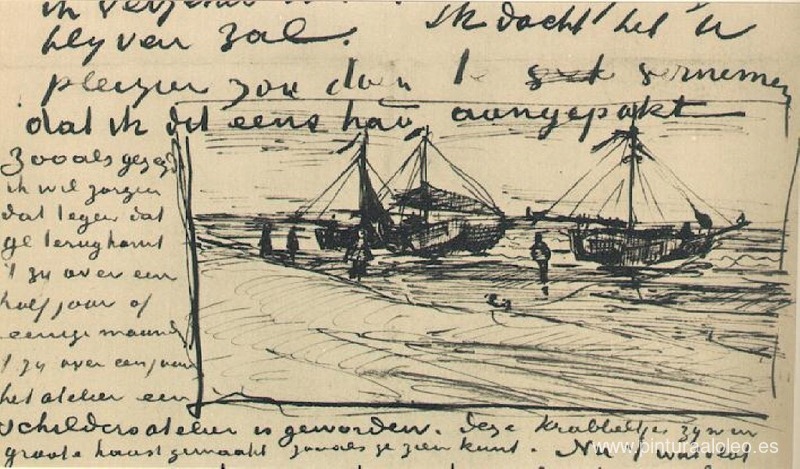 ik
blyven zal. Ik dacht het u
pleizier zou doen te vernemen
dat ik dit eens had aangepakt
Zooals gezegd
ik wil zorgen
dat tegen dat
ge terugkomt
't zy over een
half jaar of
eenige maand
't zy over een jaar
het atelier een
schildersatelier is geworden. deze krabbeltjes zyn in
groote haast gemaakt zooals ge zien kunt. Nu
www.pinturaaloleo.es